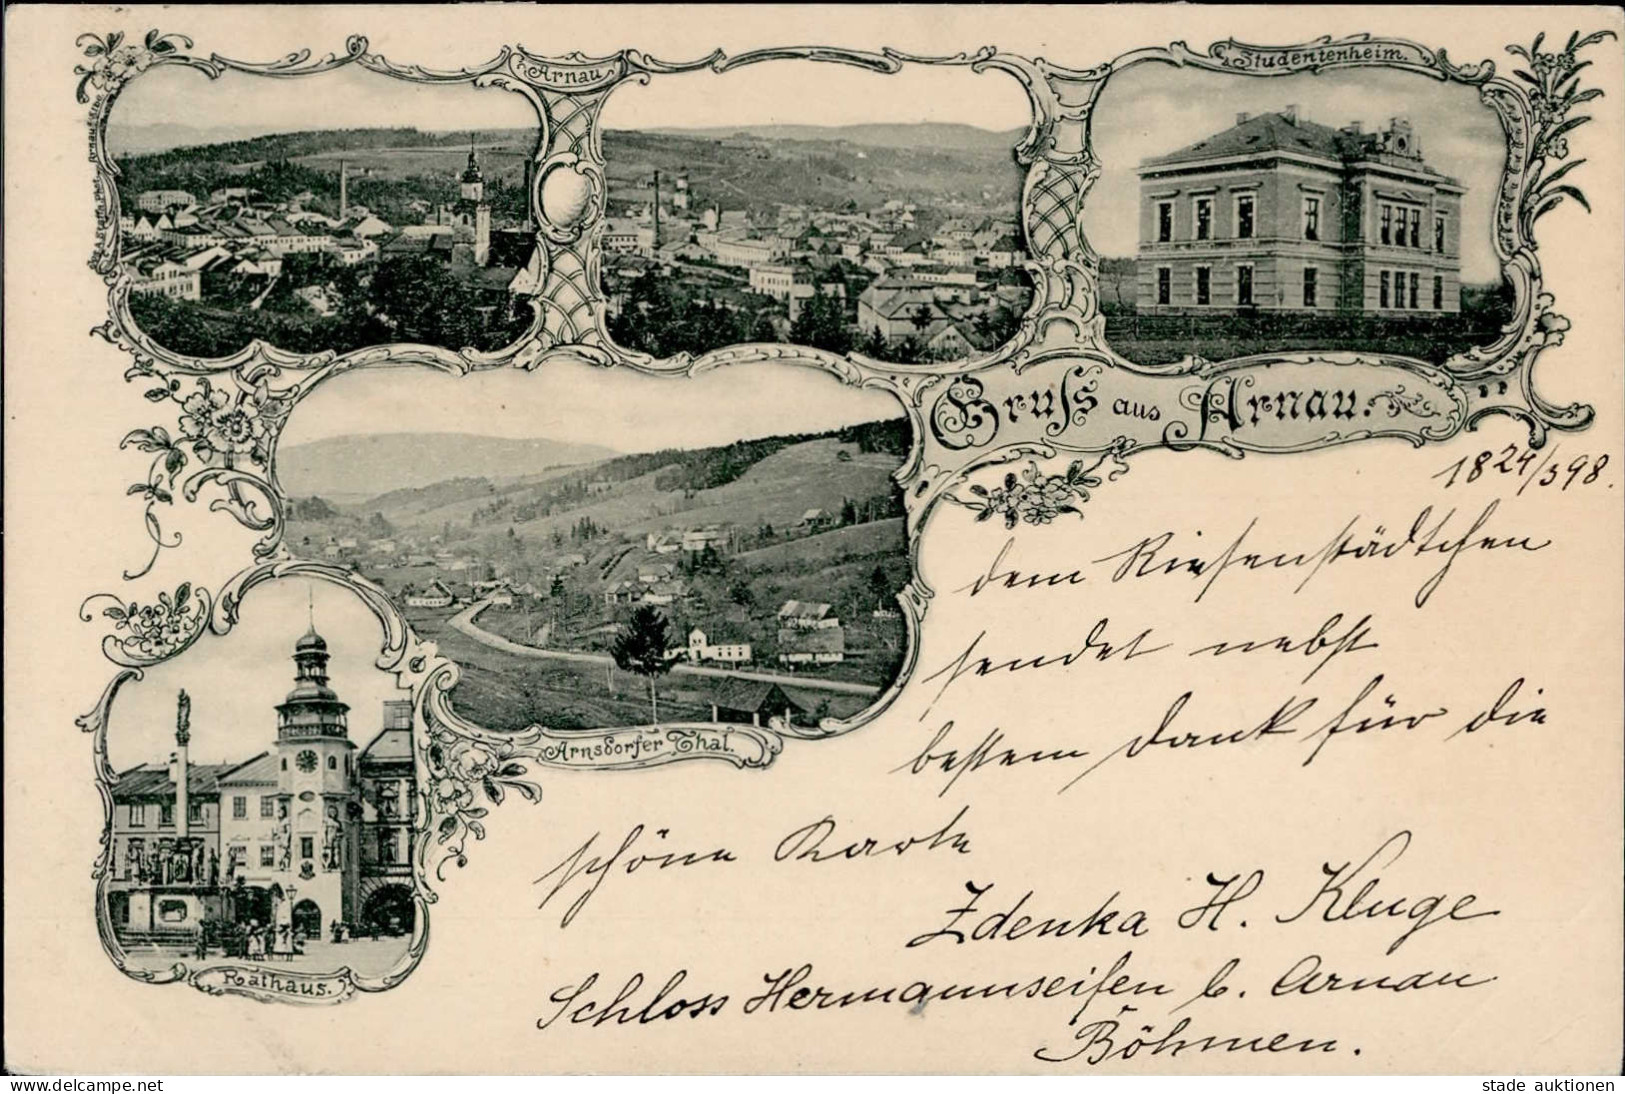 Arnau
Studentenheim.
Gruss aus Arnau.
18 24/3 98.
dem Riesenstädtchen
sendet nebst
bestem Dank für die
schöne Karte
Zdenka H. Kluge
Schloss Hermannseifen b. Arnau
Böhmen.
Arnsdorfer Thal.
Rathaus.
delcampe.net
stade auktionen